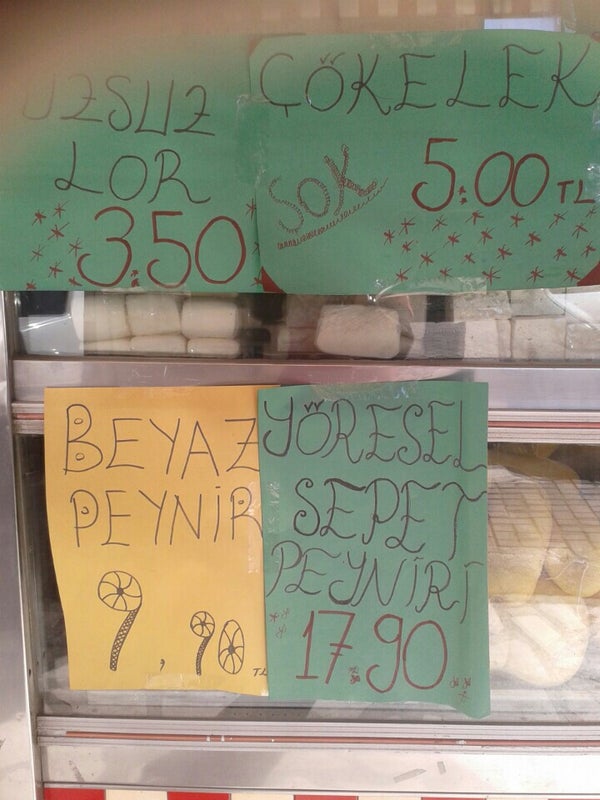 UZSUZ
LOR
3.50
ÇÖKELEK
SOK 5.00 TL
BEYAZ
PEYNİR
9,90 TL
YÖRESEL
SEPET
PEYNİRİ
17.90